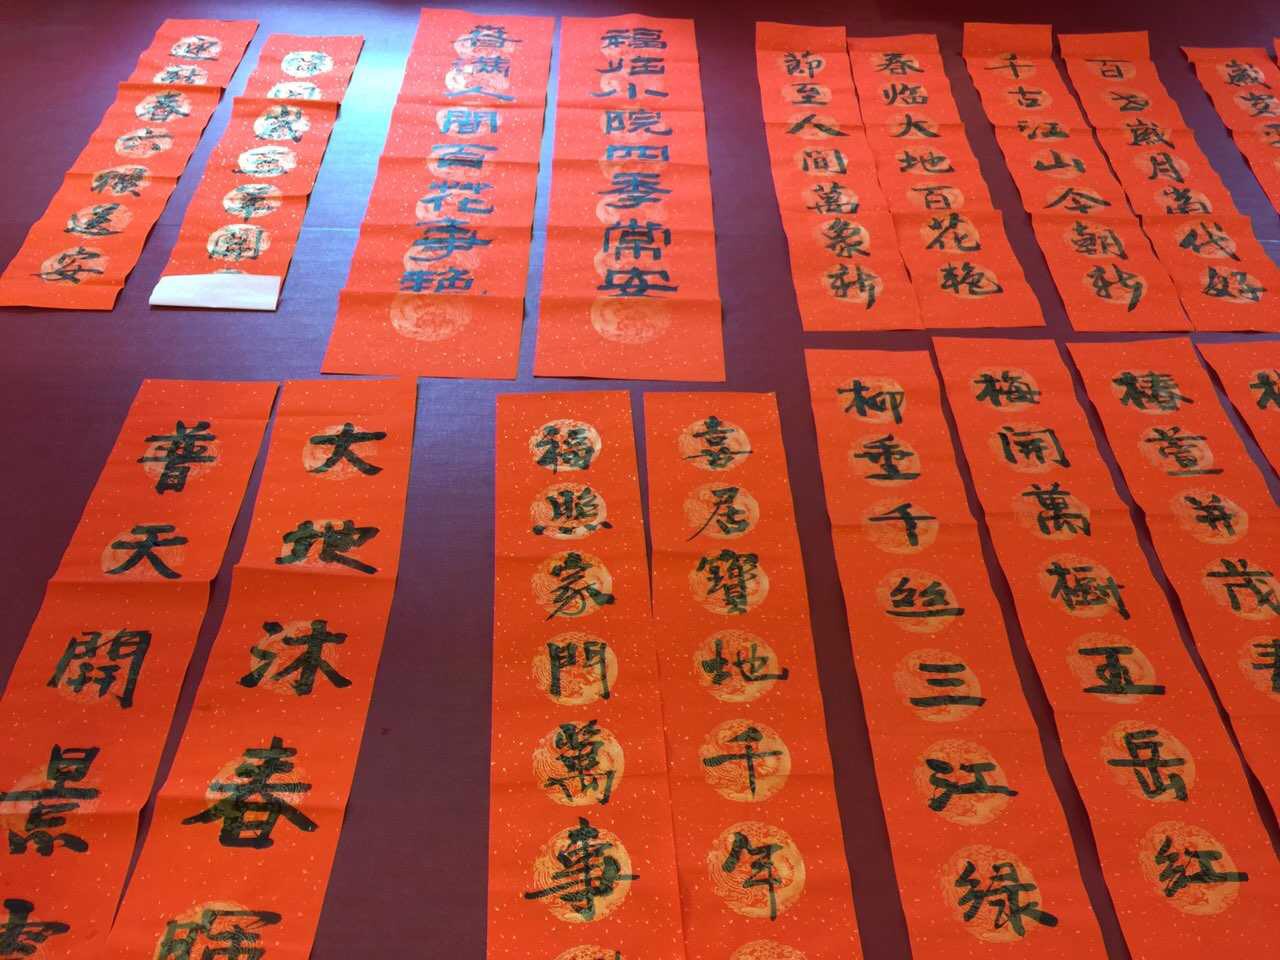 迎新春六順送安
歲華開
春滿人間百花事艳
福临小院四季常安
節至人間萬象新
春临大地百花艳
千古江山今朝新
百歲月萬代好
歲
普天開景
大地沐春暉
福照家門萬事
喜居寶地千年
柳垂千丝三江绿
梅開萬樹五岳红
椿萱并茂